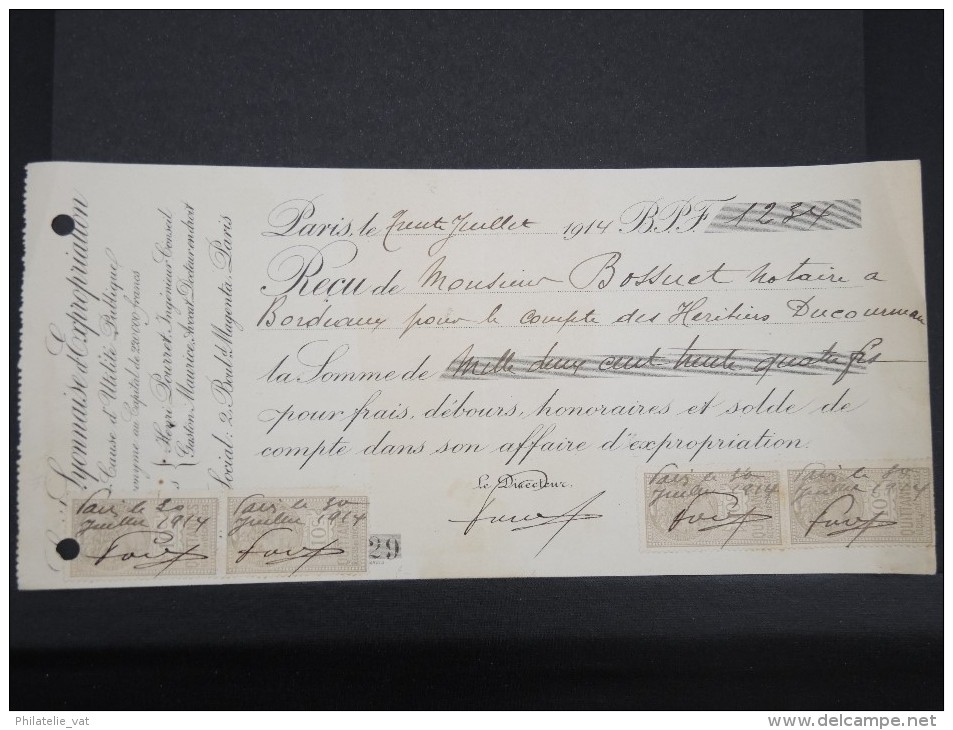 Lyonnaise d'Expropriation
Cause d'Utilité Publique
anonyme au Capital de 220.000 francs
Henri Pourrot, Ingénieur-Conseil
Gaston Maurice, Avocat, Docteur en droit
Social: 2, Boul.d Magenta, Paris
Paris, le trente Juillet 1914 B.P.F. 1234
Reçu de Monsieur Bossuet Notaire a
Bordeaux pour le compte des Heritiers Ducourneau
la Somme de Mille deux cent trente quatre frs
pour frais, débours, honoraires et solde de
compte dans son affaire d'expropriation.
Le Directeur.
Paris le 30
Juillet 1914
Paris le 30
Juillet 1914
Paris le 30
Juillet 1914
Paris le 30
Juillet 1914
10c
QUITTANCES
29
Philatelie_vat
www.delcampe.net